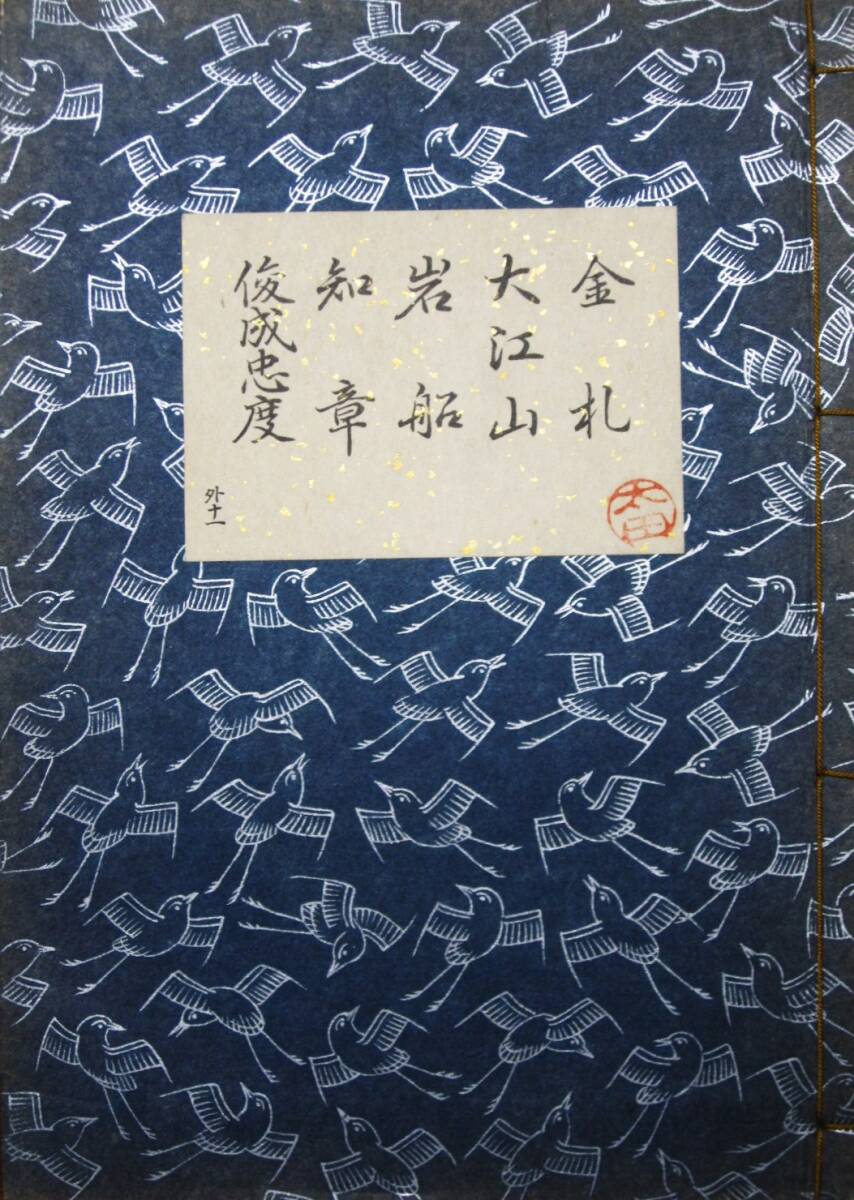 金札
大江山
岩船
知章
俊成忠度
外十一
太田